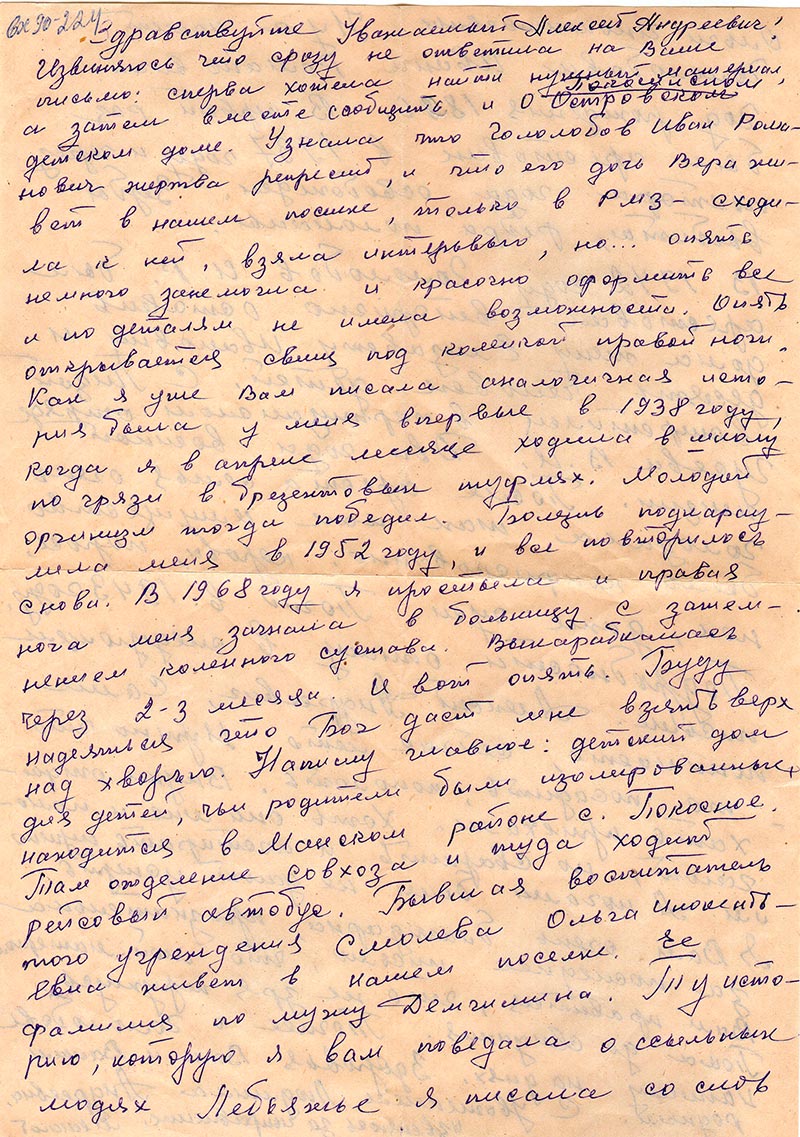 вх 90-224
Здравствуйте Уважаемый Алексей Андреевич!
Извиняюсь что сразу не ответила на Ваше
письмо: сперва хотела найти нужный материал,
Покосинском
а затем вместе сообщить и о Островском
детском доме. Узнала что Гололобов Иван Рома-
нович жертва репресий, и что его дочь Вера жи-
вет в нашем поселке, только в РМЗ – сходи-
ла к ней, взяла интервью, но... опять
немного занемогла и красочно оформить все
и по деталям не имела возможности. Опять
открывается свищ под коленкой правой ноги.
Как я уже Вам писала аналогичная исто-
рия была у меня впервые в 1938 году,
когда я в апреле месяце ходила в школу
по грязи в брезентовых туфлях. Молодой
организм тогда победил. Болезнь подкарау-
лила меня в 1952 году, и все повторилось
снова. В 1968 году я простыла и правая
нога меня загнала в больницу с затем-
нением коленного сустава. Выкарабкалась
через 2-3 месяца. И вот опять. Буду
надеяться что Бог даст мне взять верх
над хворью. Напишу главное: детский дом
для детей, чьи родители были изолированных
находится в Манском районе с. Покосное.
Там отделение совхоза и туда ходит
рейсовый автобус. Бывшая воспитатель
того учреждения Смолева Ольга Инокенть-
евна живет в нашем поселке. Ее
фамилия по мужу Демчишина. Ту исто-
рию, которую я вам поведала о ссыльных
людях Лебяжье я писала со слов